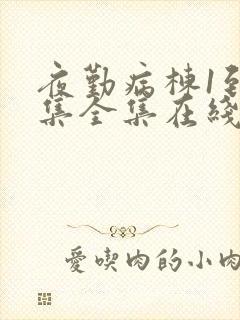 夜勤病棟1到
集全集在綫
愛喫肉的小肉